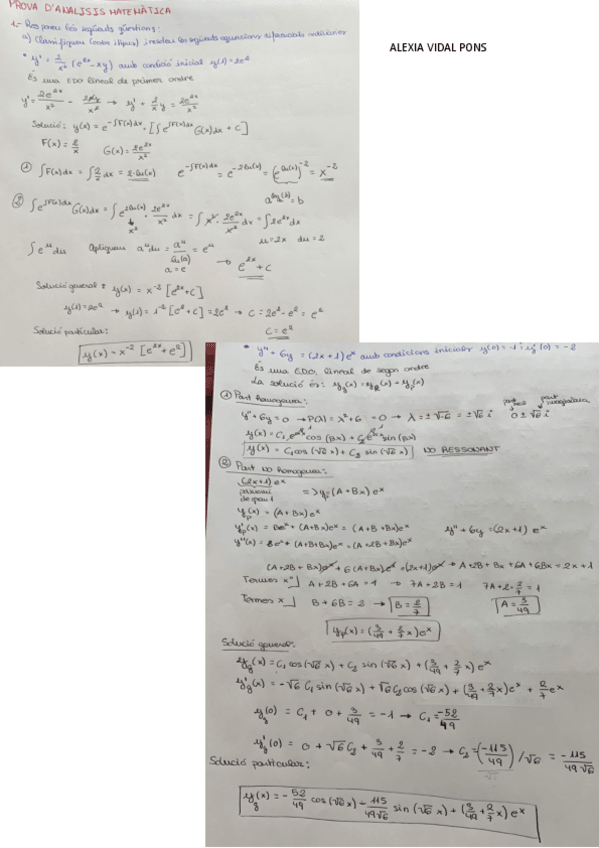 PROVA D'ANÀLISIS MATEMÀTICA
1.- Responeu les següents qüestions:
a) Classifiqueu (ordre i tipus) i resoleu les següents equacions diferencials ordinàries
* y' = 2/x² (e^2x - xy) amb condició inicial y(1) = 2e²
És una EDO lineal de primer ordre
y' = 2e^2x/x² - 2xy/x² → y' + 2/x y = 2e^2x/x²
Solució: y(x) = e^-∫F(x)dx · [∫e^∫F(x)dx G(x)dx + C]
F(x) = 2/x G(x) = 2e^2x/x²
① ∫F(x)dx = ∫2/x dx = 2·ln(x) e^-∫F(x)dx = e^-2ln(x) = (e^ln(x))^-2 = x^-2
② ∫e^∫F(x)dx G(x)dx = ∫e^2ln(x) · 2e^2x/x² dx = ∫x² · 2e^2x/x² dx = ∫2e^2x dx
x²
a^loga(b) = b
u = 2x du = 2
∫e^u du Apliquem a^u du = a^u/ln(a) = e^u → e^2x + C
a = e
Solució general: y(x) = x^-2 [e^2x + C]
y(1) = 2e² → y(1) = 1^-2 [e² + C] = 2e² → C = 2e² - e² = e²
C = e²
Solució particular:
y(x) = x^-2 [e^2x + e²]
ALEXIA VIDAL PONS
* y'' + 6y = (2x+1)e^x amb condicions inicials y(0) = -1 i y'(0) = -2
És una EDO, lineal de segon ordre
La solució és: yg(x) = yh(x) + yp(x)
① Part homogènea:
part real part imaginària
y'' + 6y = 0 → P(λ) = λ² + 6 = 0 → λ = ±√-6 = ±√6 i 0 ± √6 i
y(x) = C1 e^αx cos(βx) + C2 e^αx sin(βx)
y(x) = C1 cos(√6 x) + C2 sin(√6 x) NO RESSONANT
② Part no homogènea:
(2x+1)e^x => yp = (A+Bx)e^x
polinomi
de grau 1
yp(x) = (A+Bx)e^x
y'p(x) = Be^x + (A+Bx)e^x = (A+B+Bx)e^x y'' + 6y = (2x+1)e^x
y''(x) = Be^x + (A+B+Bx)e^x = (A+2B+Bx)e^x
(A+2B+Bx)e^x + 6(A+Bx)e^x = (2x+1)e^x → A+2B+Bx+6A+6Bx = 2x+1
Termes x⁰ A+2B+6A = 1 → 7A+2B = 1 7A+2·2/7 = 1
Termes x B+6B = 2 → B = 2/7 A = 3/49
yp(x) = (3/49 + 2/7 x)e^x
Solució general:
yg(x) = C1 cos(√6 x) + C2 sin(√6 x) + (3/49 + 2/7 x)e^x
y'g(x) = -√6 C1 sin(√6 x) + √6 C2 cos(√6 x) + (3/49 + 2/7 x)e^x + 2/7 e^x
yg(0) = C1 + 0 + 3/49 = -1 → C1 = -52/49
y'g(0) = 0 + √6 C2 + 3/49 + 2/7 = -2 → C2 = (-115/49)/√6 = -115/49√6
Solució particular:
yg(x) = -52/49 cos(√6 x) - 115/49√6 sin(√6 x) + (3/49 + 2/7 x)e^x